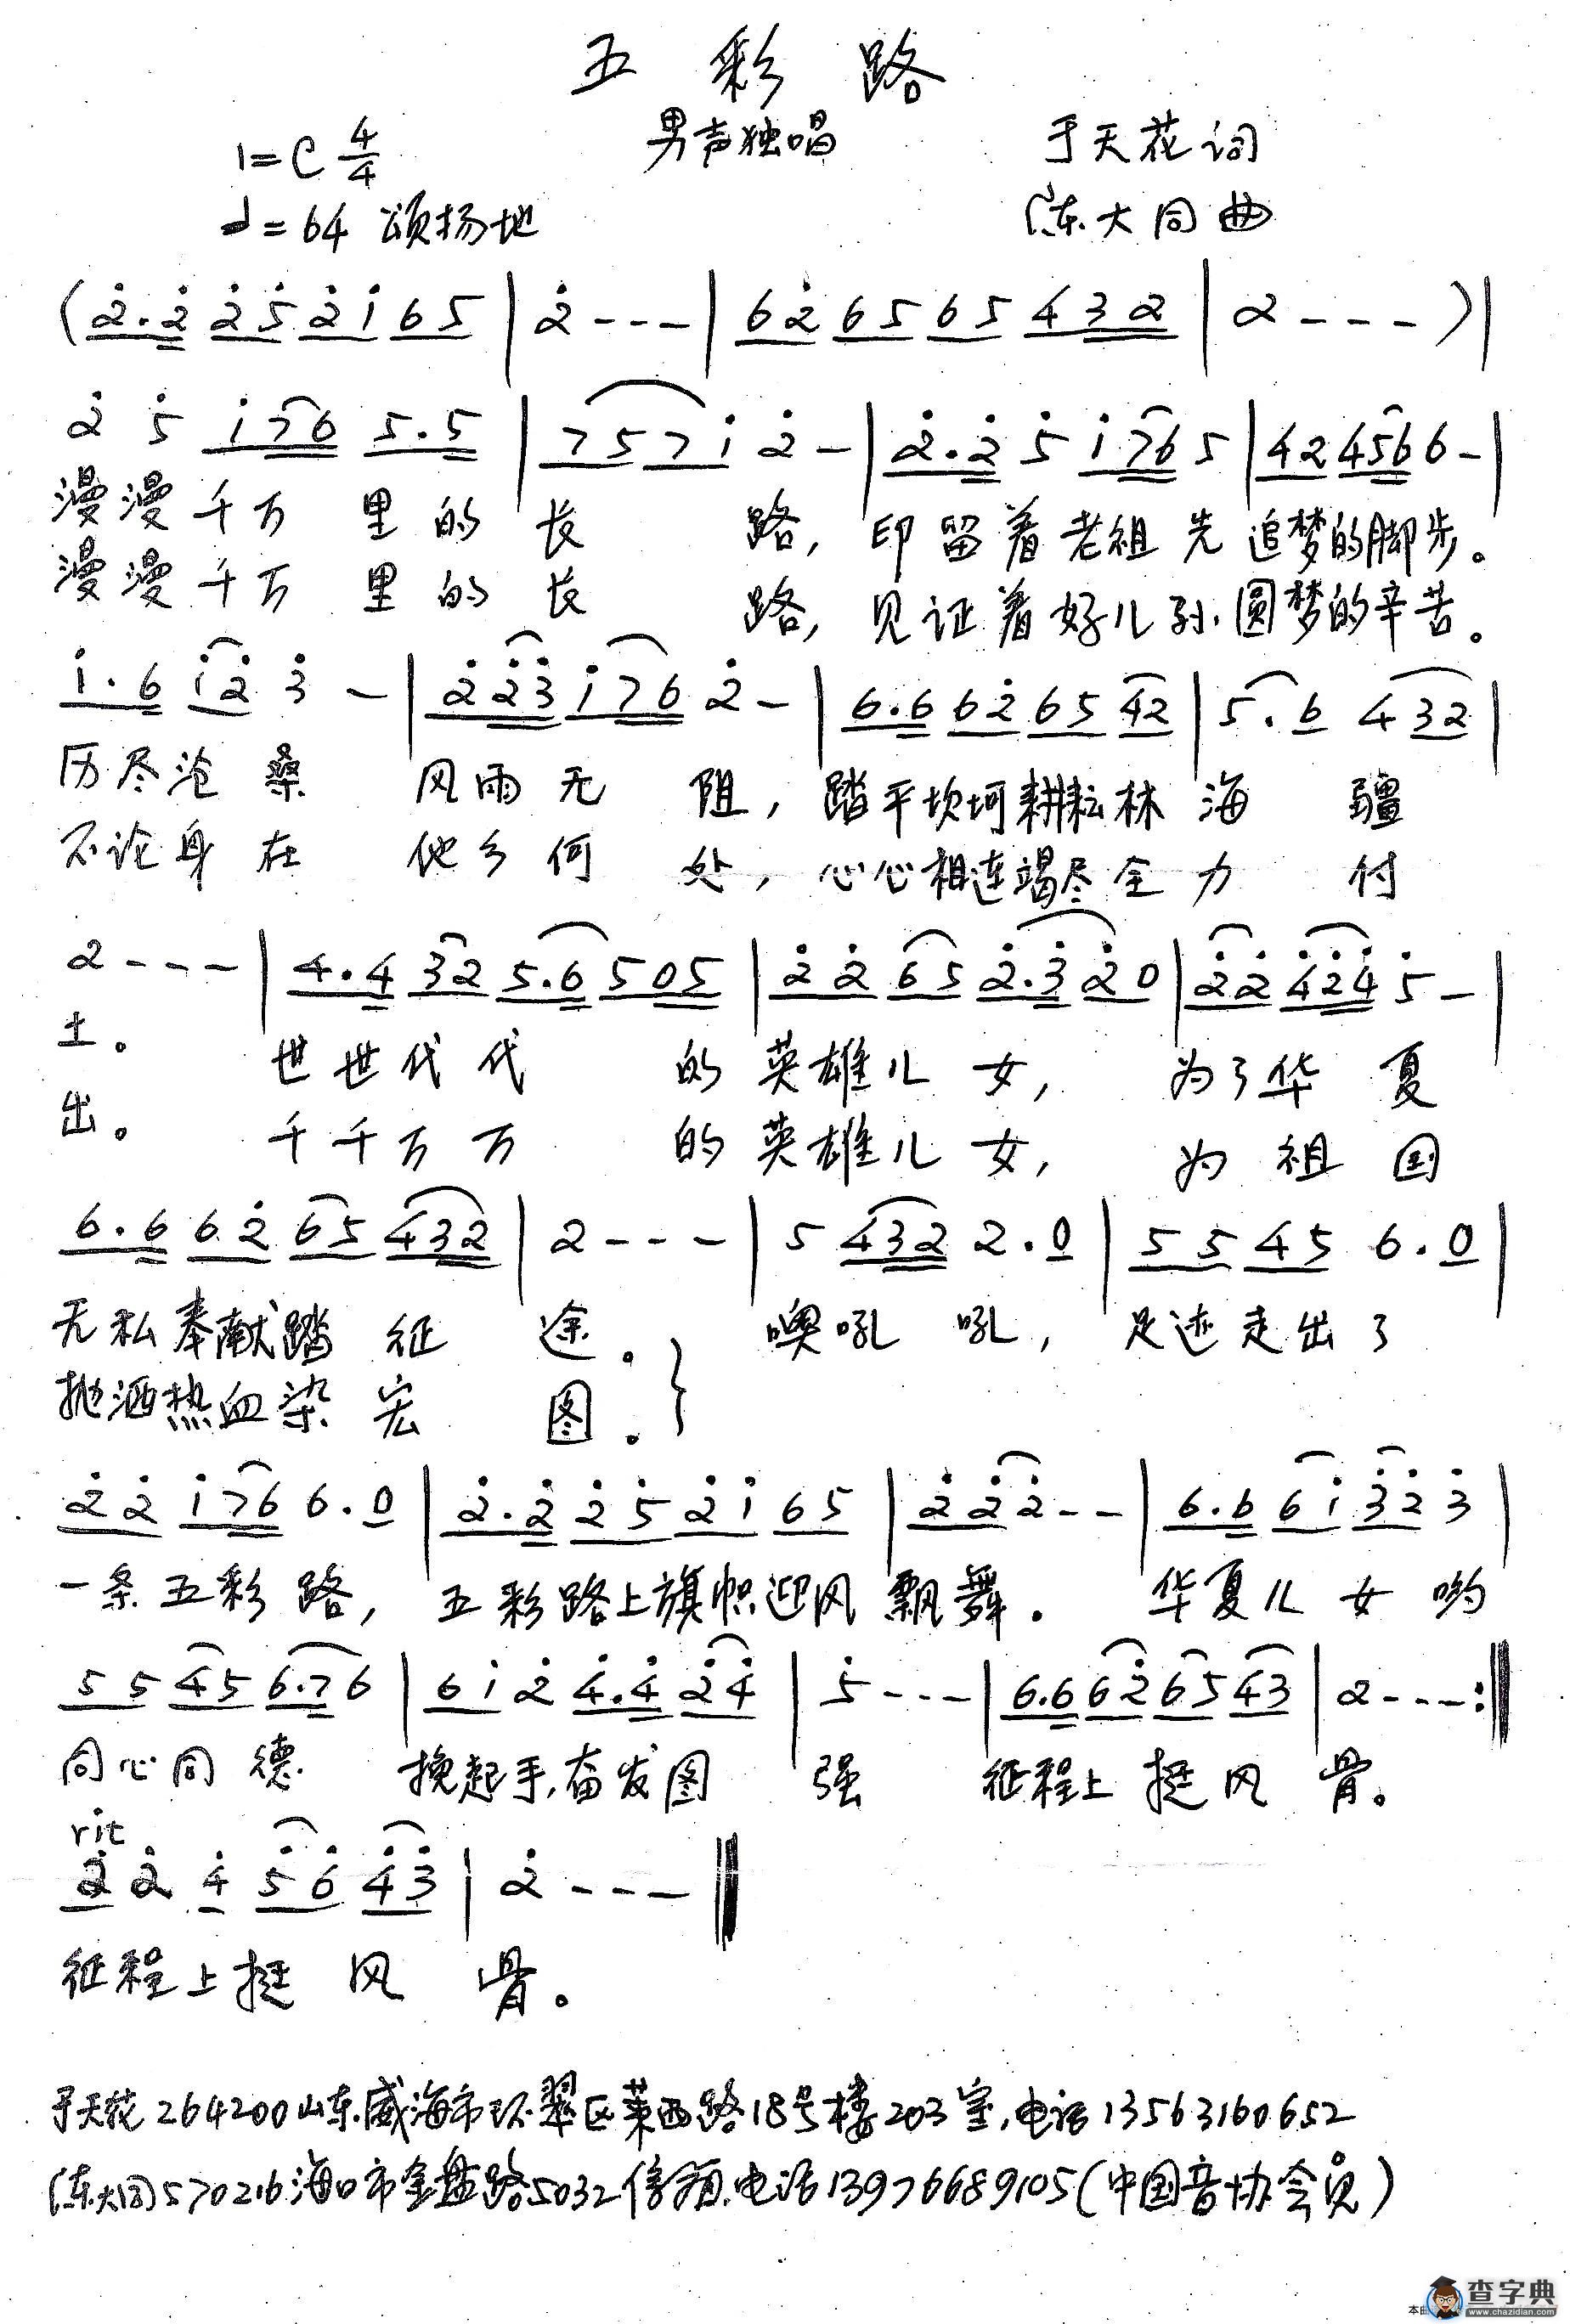 五彩路
男声独唱
1=C 4/4
于天花词
♩=64 颂扬地
陈大同曲
(2̇.2̇ 2̇5̇ 2̇1̇ 65 | 2̇ - - - | 62̇ 65 65 432 | 2 - - - )|
2̇ 5̇ 1̇76 5.5 | 7571̇ 2̇ - | 2̇.2̇ 5̇ 1̇76 5 | 42 456 6 - |
漫漫千万里的长路,印留着老祖先追梦的脚步。
漫漫千万里的长路,见证着好儿孙圆梦的辛苦。
1̇.6 1̇2̇ 3̇ - | 2̇2̇3̇ 1̇76 2̇ - | 6.6 62̇ 65 42 | 5.6 432 |
历尽沧桑 风雨无阻,踏平坎坷耕耘林海疆
不论身在 他乡何处,心心相连竭尽全力付
2 - - - | 4.4 32 5.6 505 | 2̇2̇ 65 2̇.3̇ 2̇0 | 2̇2̇ 4̇2̇4̇ 5̇ - |
土。 世世代代 的英雄儿女, 为了华夏
出。 千千万万 的英雄儿女, 为祖国
6.6 62̇ 65 432 | 2 - - - | 5 432 2.0 | 55 45 6.0 |
无私奉献踏征途。 噢吼吼, 足迹走出了
抛洒热血染宏图。
2̇2̇ 1̇76 6.0 | 2̇.2̇ 2̇5̇ 2̇1̇ 65 | 2̇2̇2̇ - - | 6.6 61̇ 3̇2̇ 3̇ |
一条五彩路, 五彩路上旗帜迎风飘舞。 华夏儿女哟
55 45 6.76 | 61̇ 2̇ 4̇.4̇ 2̇4̇ | 5̇ - - - | 6.6 62̇ 65 43 | 2 - - - :‖
同心同德 挽起手,奋发图强 征程上挺风骨。
rit
2̇ 2̇ 4̇ 5̇6̇ 4̇3̇ | 2̇ - - - ‖
征程上挺风骨。
于天花 264200山东威海市环翠区莱西路18号楼203室,电话13563160652
(陈大同)570216海口市金盘路5032信箱,电话13976689105(中国音协会员)
查字典
www.chazidian.com